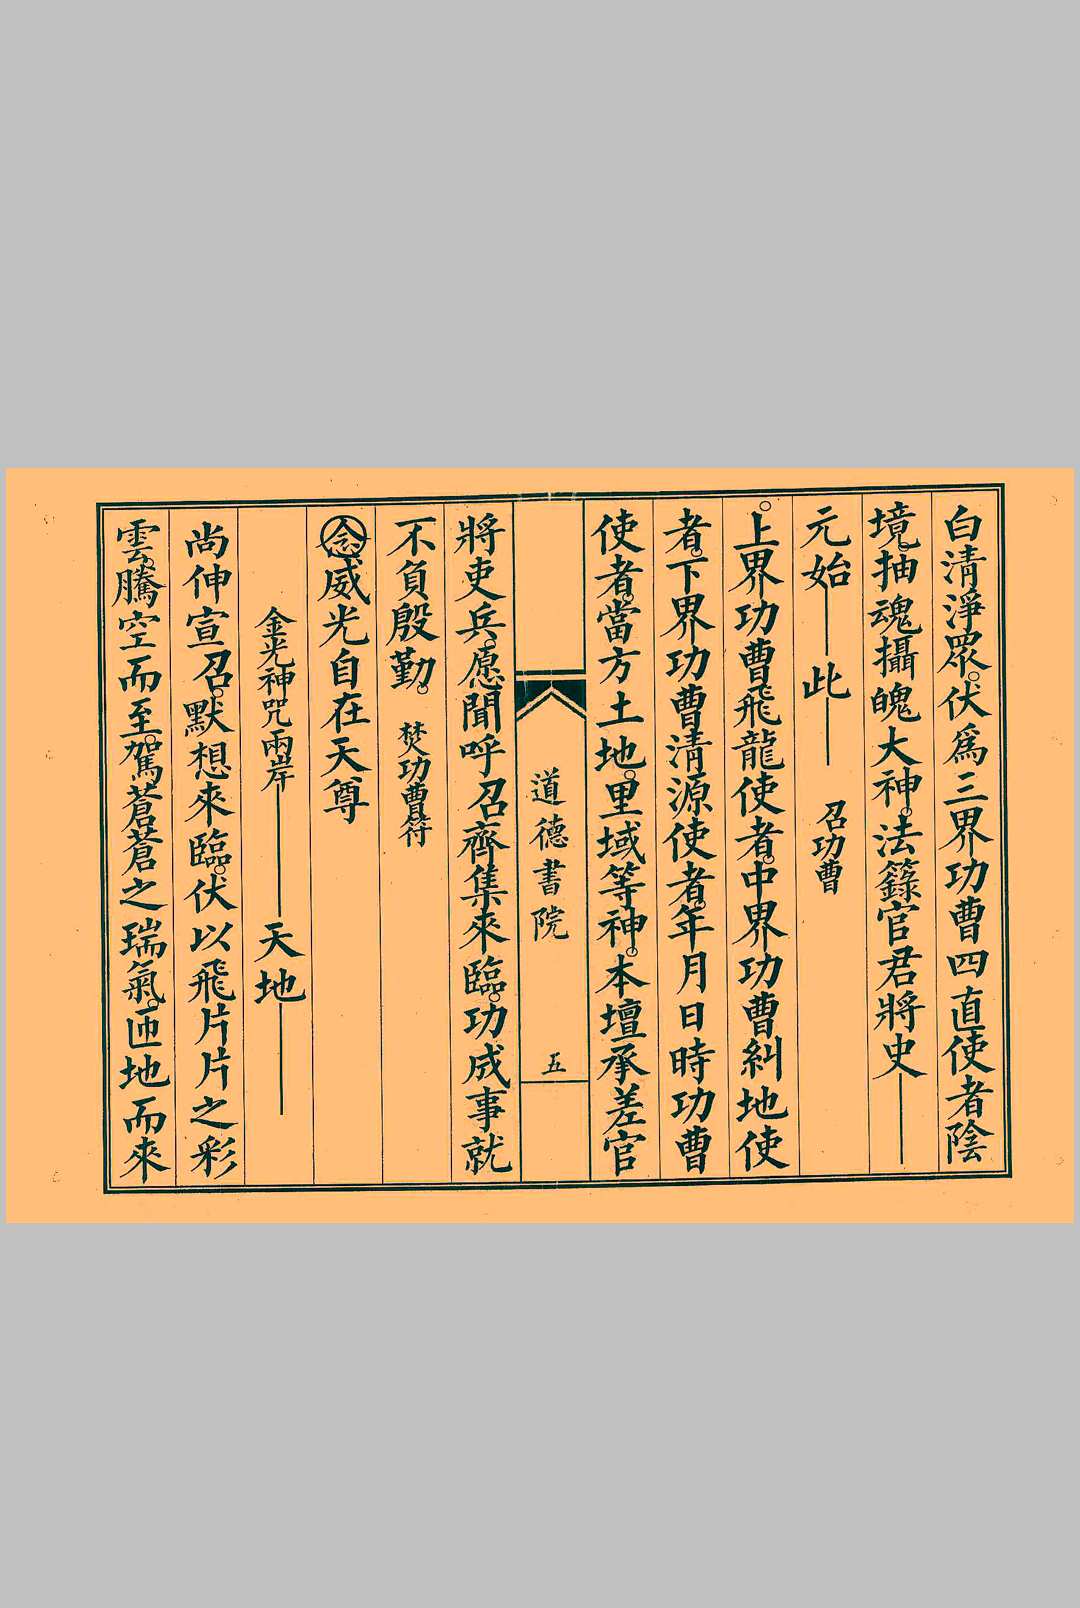 白清淨眾。伏爲三界功曹四直使者陰
境。抽魂攝魄大神。法籙官君將吏——
元始——此——　召功曹
。上界功曹飛龍使者。中界功曹糾地使
者。下界功曹清源使者。年月日時功曹
使者。當方土地。里域等神。本壇承差官
道德書院　五
將吏兵。愿聞呼召齊集來臨。功成事就
不負殷勤。　焚功曹符
㊀念威光自在天尊
金光神咒兩岸——天地——
尚伸宣召。默想來臨。伏以飛片片之彩
雲。騰空而至。駕蒼蒼之瑞氣。匝地而來